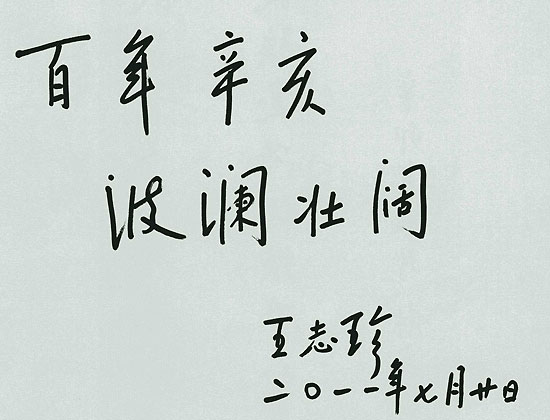 百年辛亥
波澜壮阔
王志珍
二〇一一年七月廿日